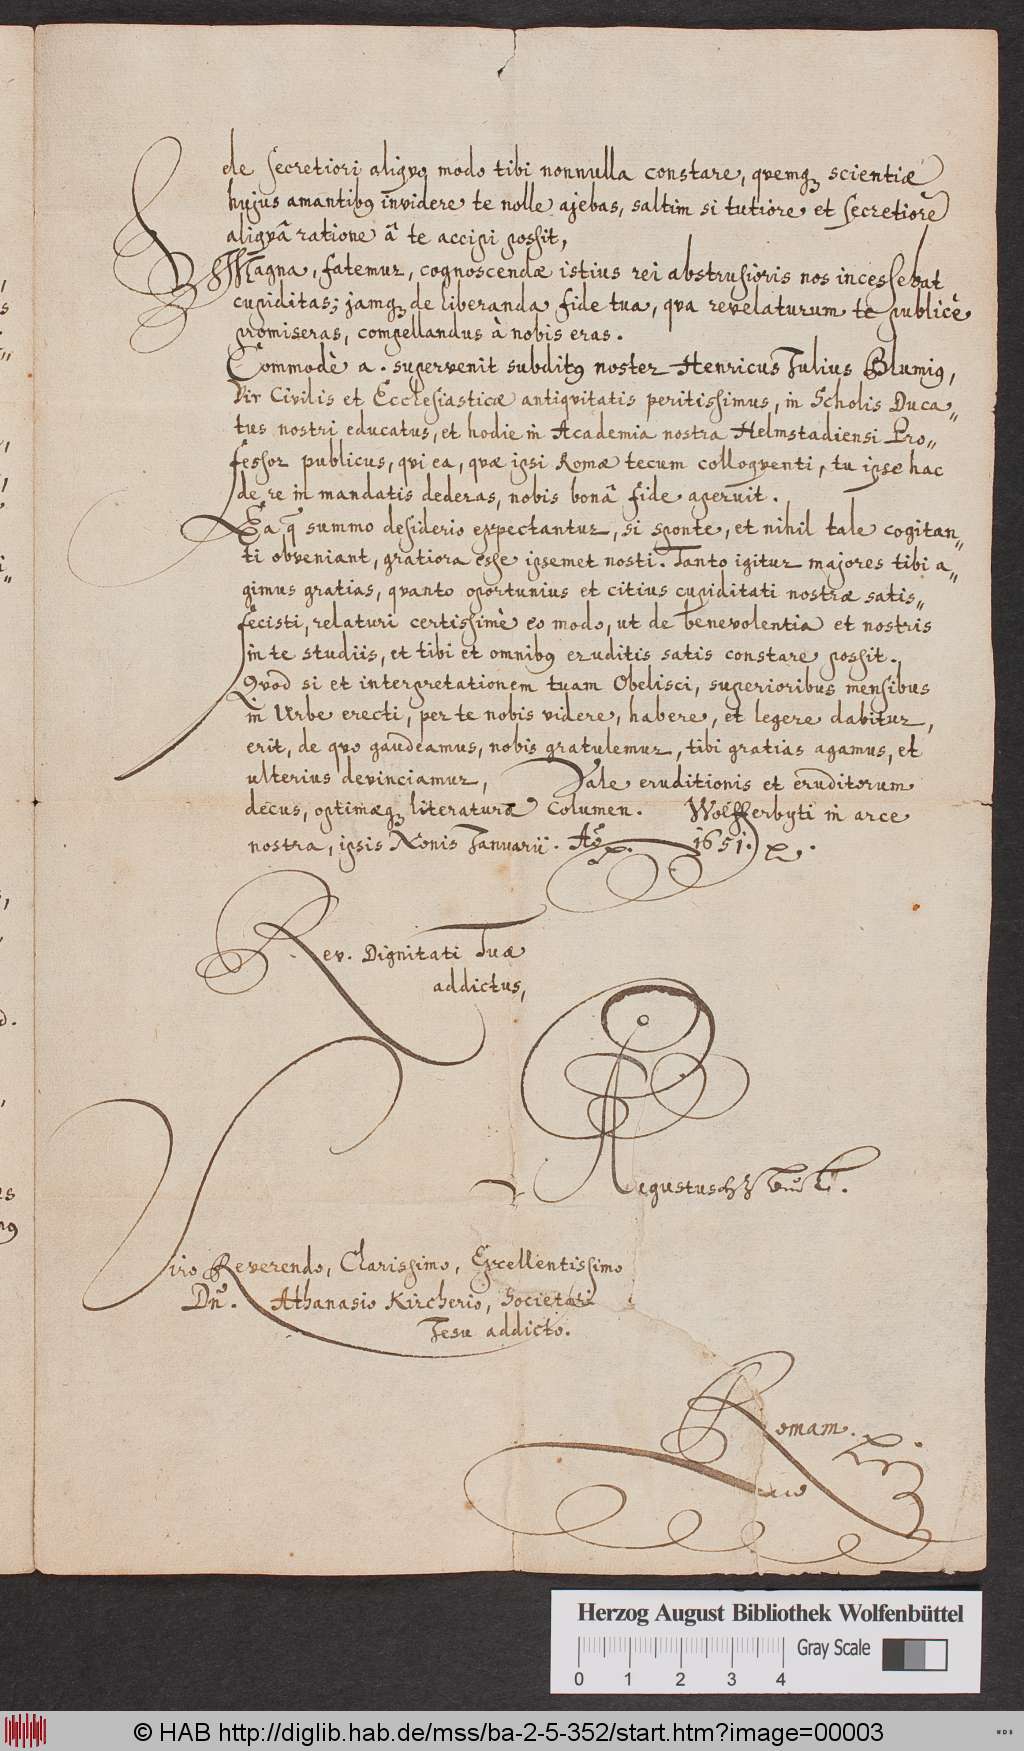 de secretiori aliqvo modo tibi nonnulla constare, qvemq; scientiæ
hujus amantibꝰ invidere te nolle ajebas, saltim si tutiore et secretiore
aliqvâ ratione â te accipi possit,
Magna, fatemur, cognoscendæ istius rei abstrusioris nos incessebat
cupiditas; jamq; de liberanda fide tua, qva revelaturum te publicè
promiseras, compellandus à nobis eras.
Commodè a. supervenit subditꝰ noster Henricus Julius Blumiꝰ,
Vir Civilis et Ecclesiasticæ antiqvitatis peritissimus, in Scholis Duca„
tus nostri educatus, et hodie in Academia nostra Helmstadiensi Pro„
fessor publicus, qvi ea, qvæ ipsi Romæ tecum colloqventi, tu ipse hac
de re in mandatis dederas, nobis bonâ fide aperuit.
Ea q̃ summo desiderio expectantur, si sponte, et nihil tale cogitan„
ti obveniant, gratiora esse ipsemet nosti. Tanto igitur majores tibi a„
gimus gratias, qvanto oportunius et citius cupiditati nostræ satis„
fecisti, relaturi certissimè eo modo, ut de benevolentia et nostris
in te studiis, et tibi et omnibꝰ eruditis satis constare possit.
Qvod si et interpretationem tuam Obelisci, superioribus mensibus
in Urbe erecti, per te nobis videre, habere, et legere dabitur,
erit, de qvo gaudeamus, nobis gratulemur, tibi gratias agamus, et
ulterius devinciamur, Vale eruditionis et eruditorum
decus, optimæq; literaturæ Columen. Wolfferbyti in arce
nostra, ipsis Nonis Januarii. Aõ 1651.
Rev. Dignitati Tuæ
addictus,
Augustus
Viro Reverendo, Clarissimo, Excellentissimo
Dñ. Athanasio Kircherio, Societati
Jesu addicto.
Romam.
Herzog August Bibliothek Wolfenbüttel
Gray Scale
0 1 2 3 4
© HAB http://diglib.hab.de/mss/ba-2-5-352/start.htm?image=00003